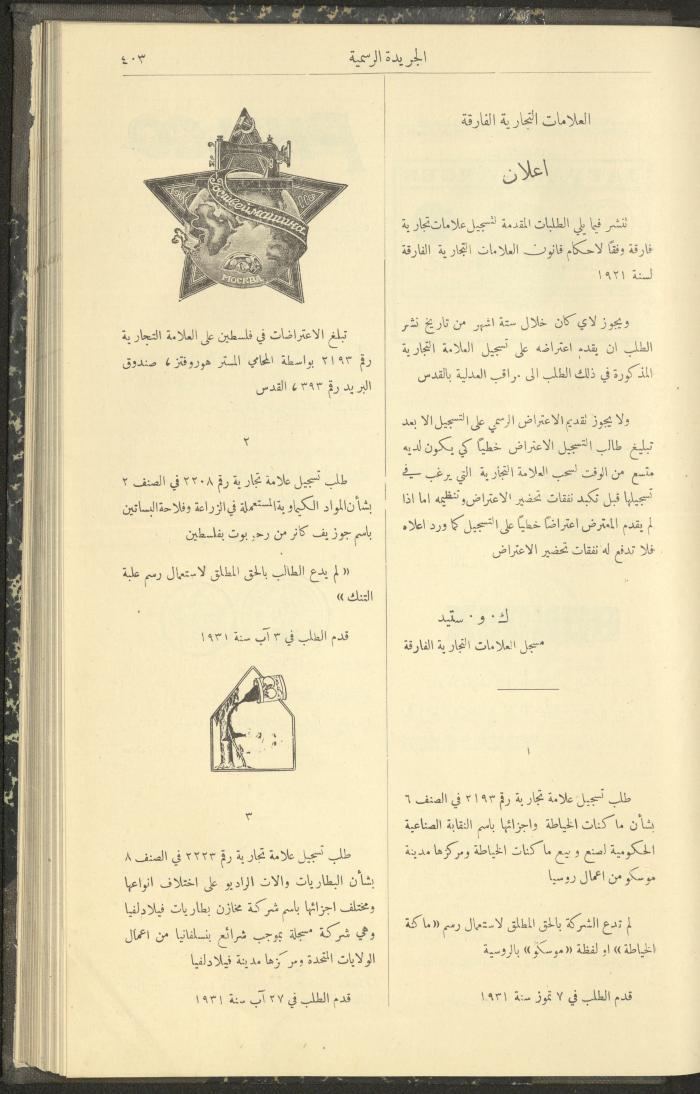 الجريدة الرسمية
٤٠٣
العلامات التجارية الفارقة
اعلان
ننشر فيما يلي الطلبات المقدمة لتسجيل علامات تجارية
فارقة وفقًا لاحكام قانون العلامات التجارية الفارقة
لسنة ١٩٢١
ويجوز لاي كان خلال ستة اشهر من تاريخ نشر
الطلب ان يقدم اعتراضه على تسجيل العلامة التجارية
المذكورة في ذلك الطلب الى مراقب العدلية بالقدس
ولا يجوز تقديم الاعتراض الرسمي على التسجيل الا بعد
تبليغ طالب التسجيل الاعتراض خطيًا كي يكون لديه
متسع من الوقت لسحب العلامة التجارية التي يرغب في
تسجيلها قبل تكبد نفقات تحضير الاعتراض وتنظيمه اما اذا
لم يقدم المعترض اعتراضًا خطيًا على التسجيل كما ورد اعلاه
فلا تدفع له نفقات تحضير الاعتراض
ك ٠ و ٠ ستيد
مسجل العلامات التجارية الفارقة
١
طلب تسجيل علامة تجارية رقم ٢١٩٣ في الصنف ٦
بشأن ماكنات الخياطة واجزائها باسم النقابة الصناعية
الحكومية لصنع وبيع ماكنات الخياطة ومركزها مدينة
موسكو من اعمال روسيا
لم تدع الشركة بالحق المطلق لاستعمال رسم «ماكنة
الخياطة» او لفظة «موسكو» بالروسية
قدم الطلب في ٧ تموز سنة ١٩٣١
Госшвеймашина
МОСКВА
تبلغ الاعتراضات في فلسطين على العلامة التجارية
رقم ٢١٩٣ بواسطة المحامي المستر هوروفتز، صندوق
البريد رقم ٣٩٣، القدس
٢
طلب تسجيل علامة تجارية رقم ٢٢٠٨ في الصنف ٢
بشأن المواد الكيماوية المستعملة في الزراعة وفلاحة البساتين
باسم جوزيف كانر من رحوبوت بفلسطين
«لم يدع الطالب بالحق المطلق لاستعمال رسم علبة
التنك»
قدم الطلب في ٣ آب سنة ١٩٣١
٣
طلب تسجيل علامة تجارية رقم ٢٢٢٣ في الصنف ٨
بشأن البطاريات والات الراديو على اختلاف انواعها
ومختلف اجزائها باسم شركة مخازن بطاريات فيلادلفيا
وهي شركة مسجلة بموجب شرائع بنسلفانيا من اعمال
الولايات المتحدة ومركزها مدينة فيلادلفيا
قدم الطلب في ٢٧ آب سنة ١٩٣١